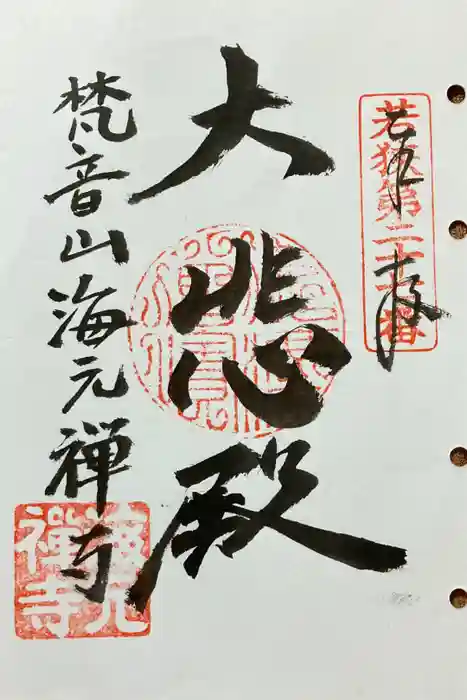 奉拝
若狭第二十六番
大悲殿
梵音山海元禅寺
海元禅寺